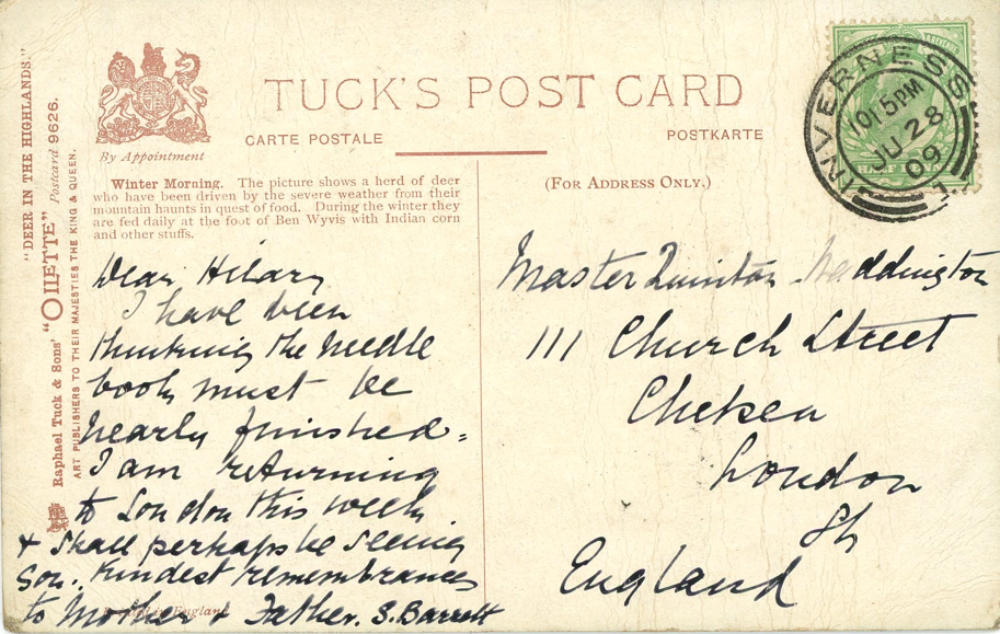 "DEER IN THE HIGHLANDS."
Raphael Tuck & Sons' "OILETTE" Postcard 9626.
ART PUBLISHERS TO THEIR MAJESTIES THE KING & QUEEN.
By Appointment
TUCK'S POST CARD
CARTE POSTALE
POSTKARTE
Winter Morning. The picture shows a herd of deer
who have been driven by the severe weather from their
mountain haunts in quest of food. During the winter they
are fed daily at the foot of Ben Wyvis with Indian corn
and other stuffs.
Dear Hilary
I have been
thinking the needle
book must be
nearly finished.
I am returning
to London this week
& shall perhaps be seeing
son. Kindest remembrances
to Mother & Father. S. Barrett
(FOR ADDRESS ONLY.)
Master Quinton Waddington
111 Church Street
Chelsea
London
England
INVERNESS
1015PM
JU 28
09
HALF PENNY